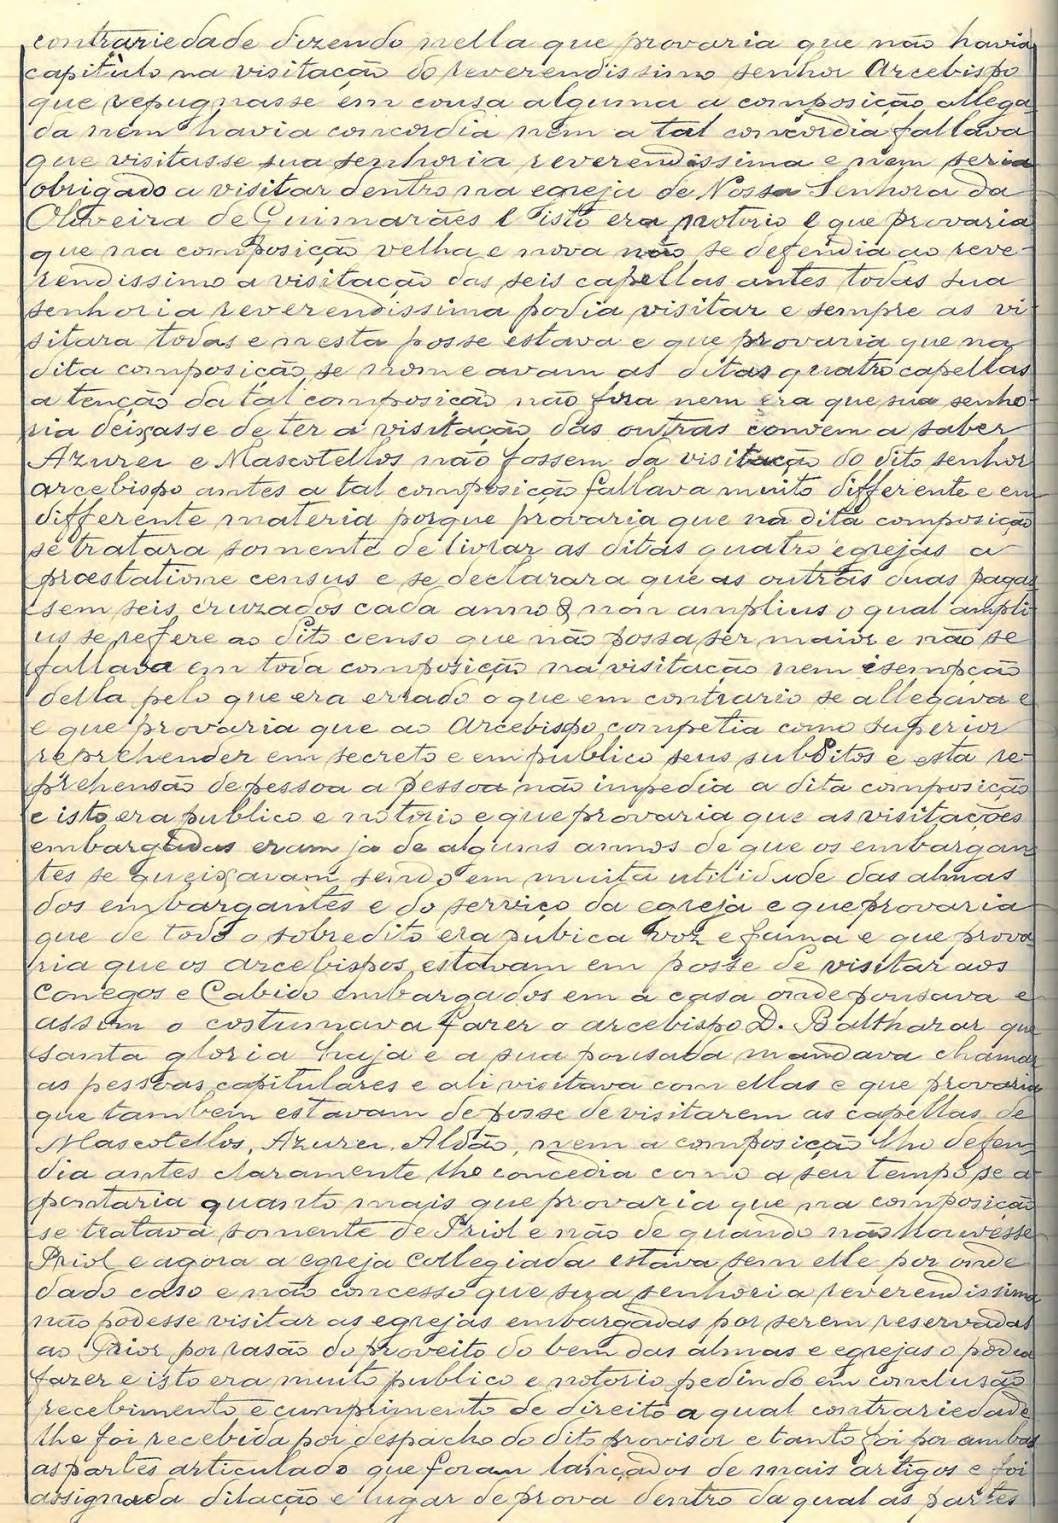 contrariedade dizendo nella que provaria que não havia
capitulo na visitação do reverendissimo senhor Arcebispo
que repugnasse em cousa alguma a composição allega-
da nem havia concordia nem a tal concordia fallava
que visitasse sua senhoria reverendissima e nem seria
obrigado a visitar dentro na egreja de Nossa Senhora da
Oliveira de Guimarães e isto era notorio e que provaria
que na composição velha e nova não se defendia ao reve-
rendissimo a visitação das seis capellas antes todas sua
senhoria reverendissima podia visitar e sempre as vi-
sitara todas e nesta posse estava e que provaria que na
dita composição se nomeavam as ditas quatro capellas
a tenção da tal composição não fora nem era que sua senho-
ria deixasse de ter a visitação das outras convem a saber
Azurei e Mascotellos não fossem da visitação do dito senhor
arcebispo antes a tal composição fallava muito differente e em
differente materia porque provaria que na dita composição
se tratara somente de livrar as ditas quatro egrejas a
præstatione census e se declarara que as outras duas pagas
sem seis cruzados cada anno & non amplius o qual ampli-
us se refere ao dito censo que não possa ser maior e não se
fallava em toda composição na visitação nem isempção
della pelo que era errado o que em contrario se allegava e
e que provaria que ao Arcebispo competia como superior
reprehender em secreto e em publico seus subditos e esta re-
prehensão de pessoa a pessoa não impedia a dita composição
e isto era publico e notorio e que provaria que as visitações
embargadas eram ja de alguns annos de que os embargan
tes se queixavam sendo em muita utilidade das almas
dos embargantes e do serviço da egreja e que provaria
que de todo o sobredito era pubica voz e fama e que prova-
ria que os arcebispos estavam em posse de visitar aos
Conegos e Cabido embargados em a casa onde pousava e
assim o costumava fazer o arcebispo D. Balthazar que
santa gloria haja e a sua pousada mandava chamar
as pessoas capitulares e ali visitava com ellas e que provaria
que tambem estavam de posse de visitarem as capellas de
Mascotellos, Azurei, Aldão, nem a composição lho defen-
dia antes claramente lho concedia como a seu tempo se a-
pontaria quanto mais que provaria que na composição
se tratava somente de Priol e não de quando não houvesse
Priol e agora a egreja collegiada estava sem elle por onde
dado caso e não concesso que sua senhoria reverendissima
não podesse visitar as egrejas embargadas por serem reservadas
ao Prior por rasão do proveito do bem das almas e egrejas o podia
fazer e isto era muito publico e notorio pedindo em conclusão
recebimento e cumprimento de direito a qual contrariedade
lhe foi recebida por despacho do dito provisor e tanto foi por ambas
as partes articulado que foram lançados de mais artigos e foi
assignada dilação e lugar de prova dentro da qual as partes